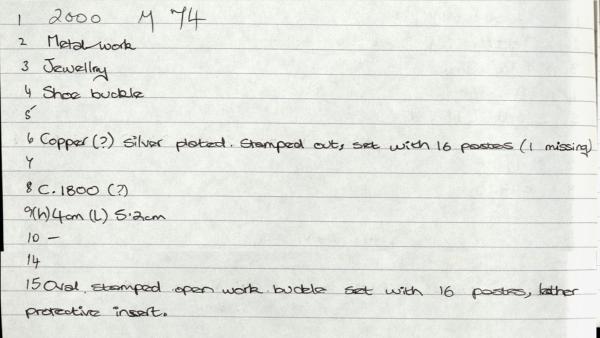 1 2000 M 74
2 Metal work
3 Jewellry
4 Shoe buckle
5
6 Copper (?) silver plated. Stamped out, set with 16 pastes (1 missing)
7
8 C. 1800 (?)
9 (h) 4cm (L) 5.2cm
10 —
14
15 Oval stamped open work buckle set with 16 pastes, lether
protective insert.